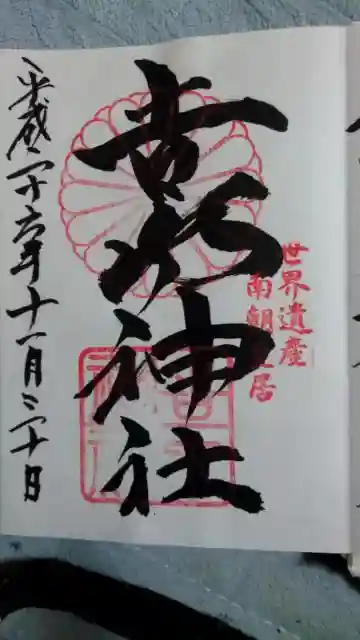 世界遺産
南朝皇居
吉水神社
平成二十六年十一月二十日